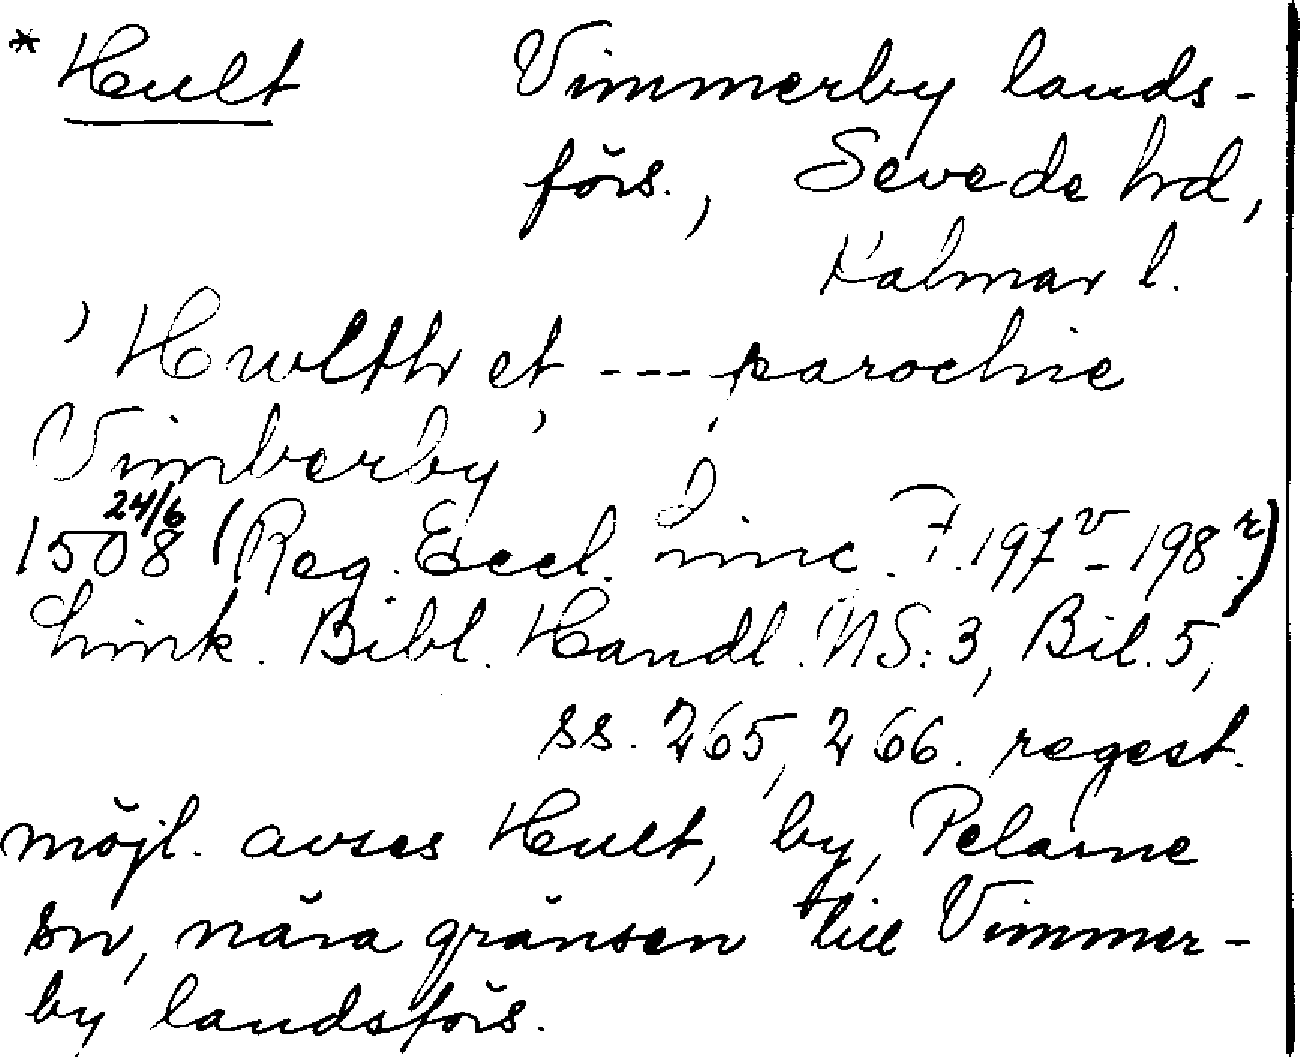 * Hult Vimmerby lands-
förs., Sevede hd,
Kalmar l.
'Hwlth et --- parochie
Vimberby'
1508 24/6 (Reg. Eccl. Linc. F. 197v - 198r)
Link. Bibl. Handl. NS: 3, Bil. 5,
ss. 265, 266. regest.
möjl. avses Hult, by, Pelarne
sn, nära gränsen till Vimmer-
by landsförs.